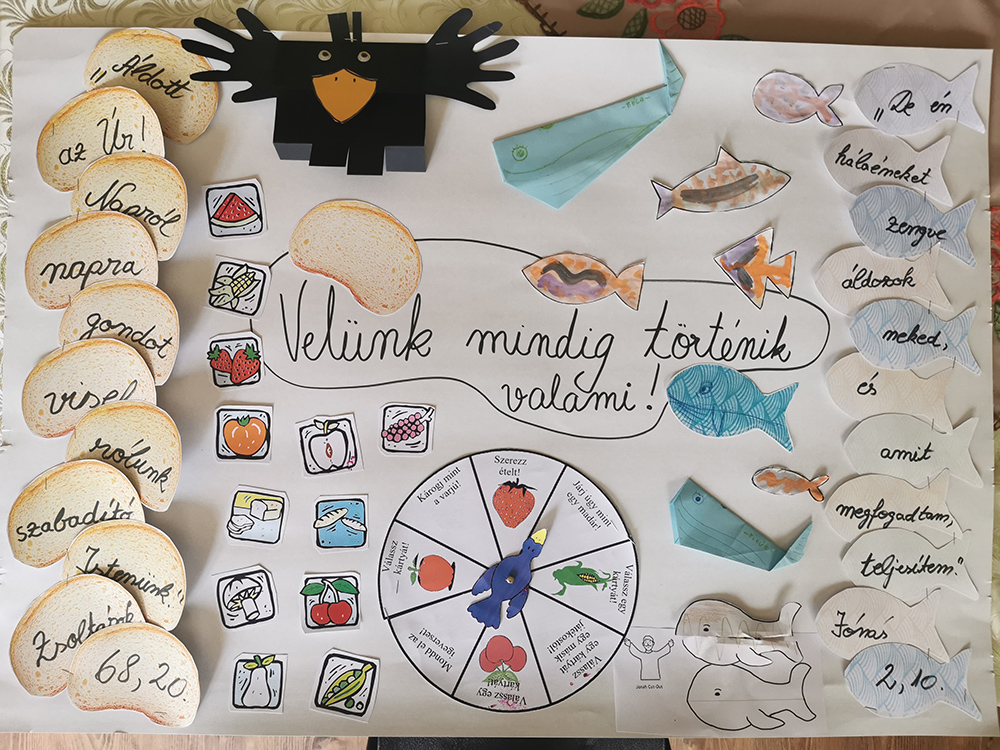 „Áldott
az Úr!
Napról
napra
gondot
visel
rólunk
szabadító
Istenünk."
Zsoltárok
68, 20.
Velünk mindig történik
valami!
Szerezz
ételt!
Járj úgy mint
egy madár!
Válassz egy
kártyát!
Válassz
egy kártyát
egy másik
játékostól!
Válassz egy
kártyát!
Mondd el az
igeverset!
Válassz
kártyát!
Károgj mint
a varjú!
Jonah Cut Out
„De én
hálaéneket
zengve
áldozok
neked,
és
amit
megfogadtam,
teljesítem."
Jónás
2, 10.